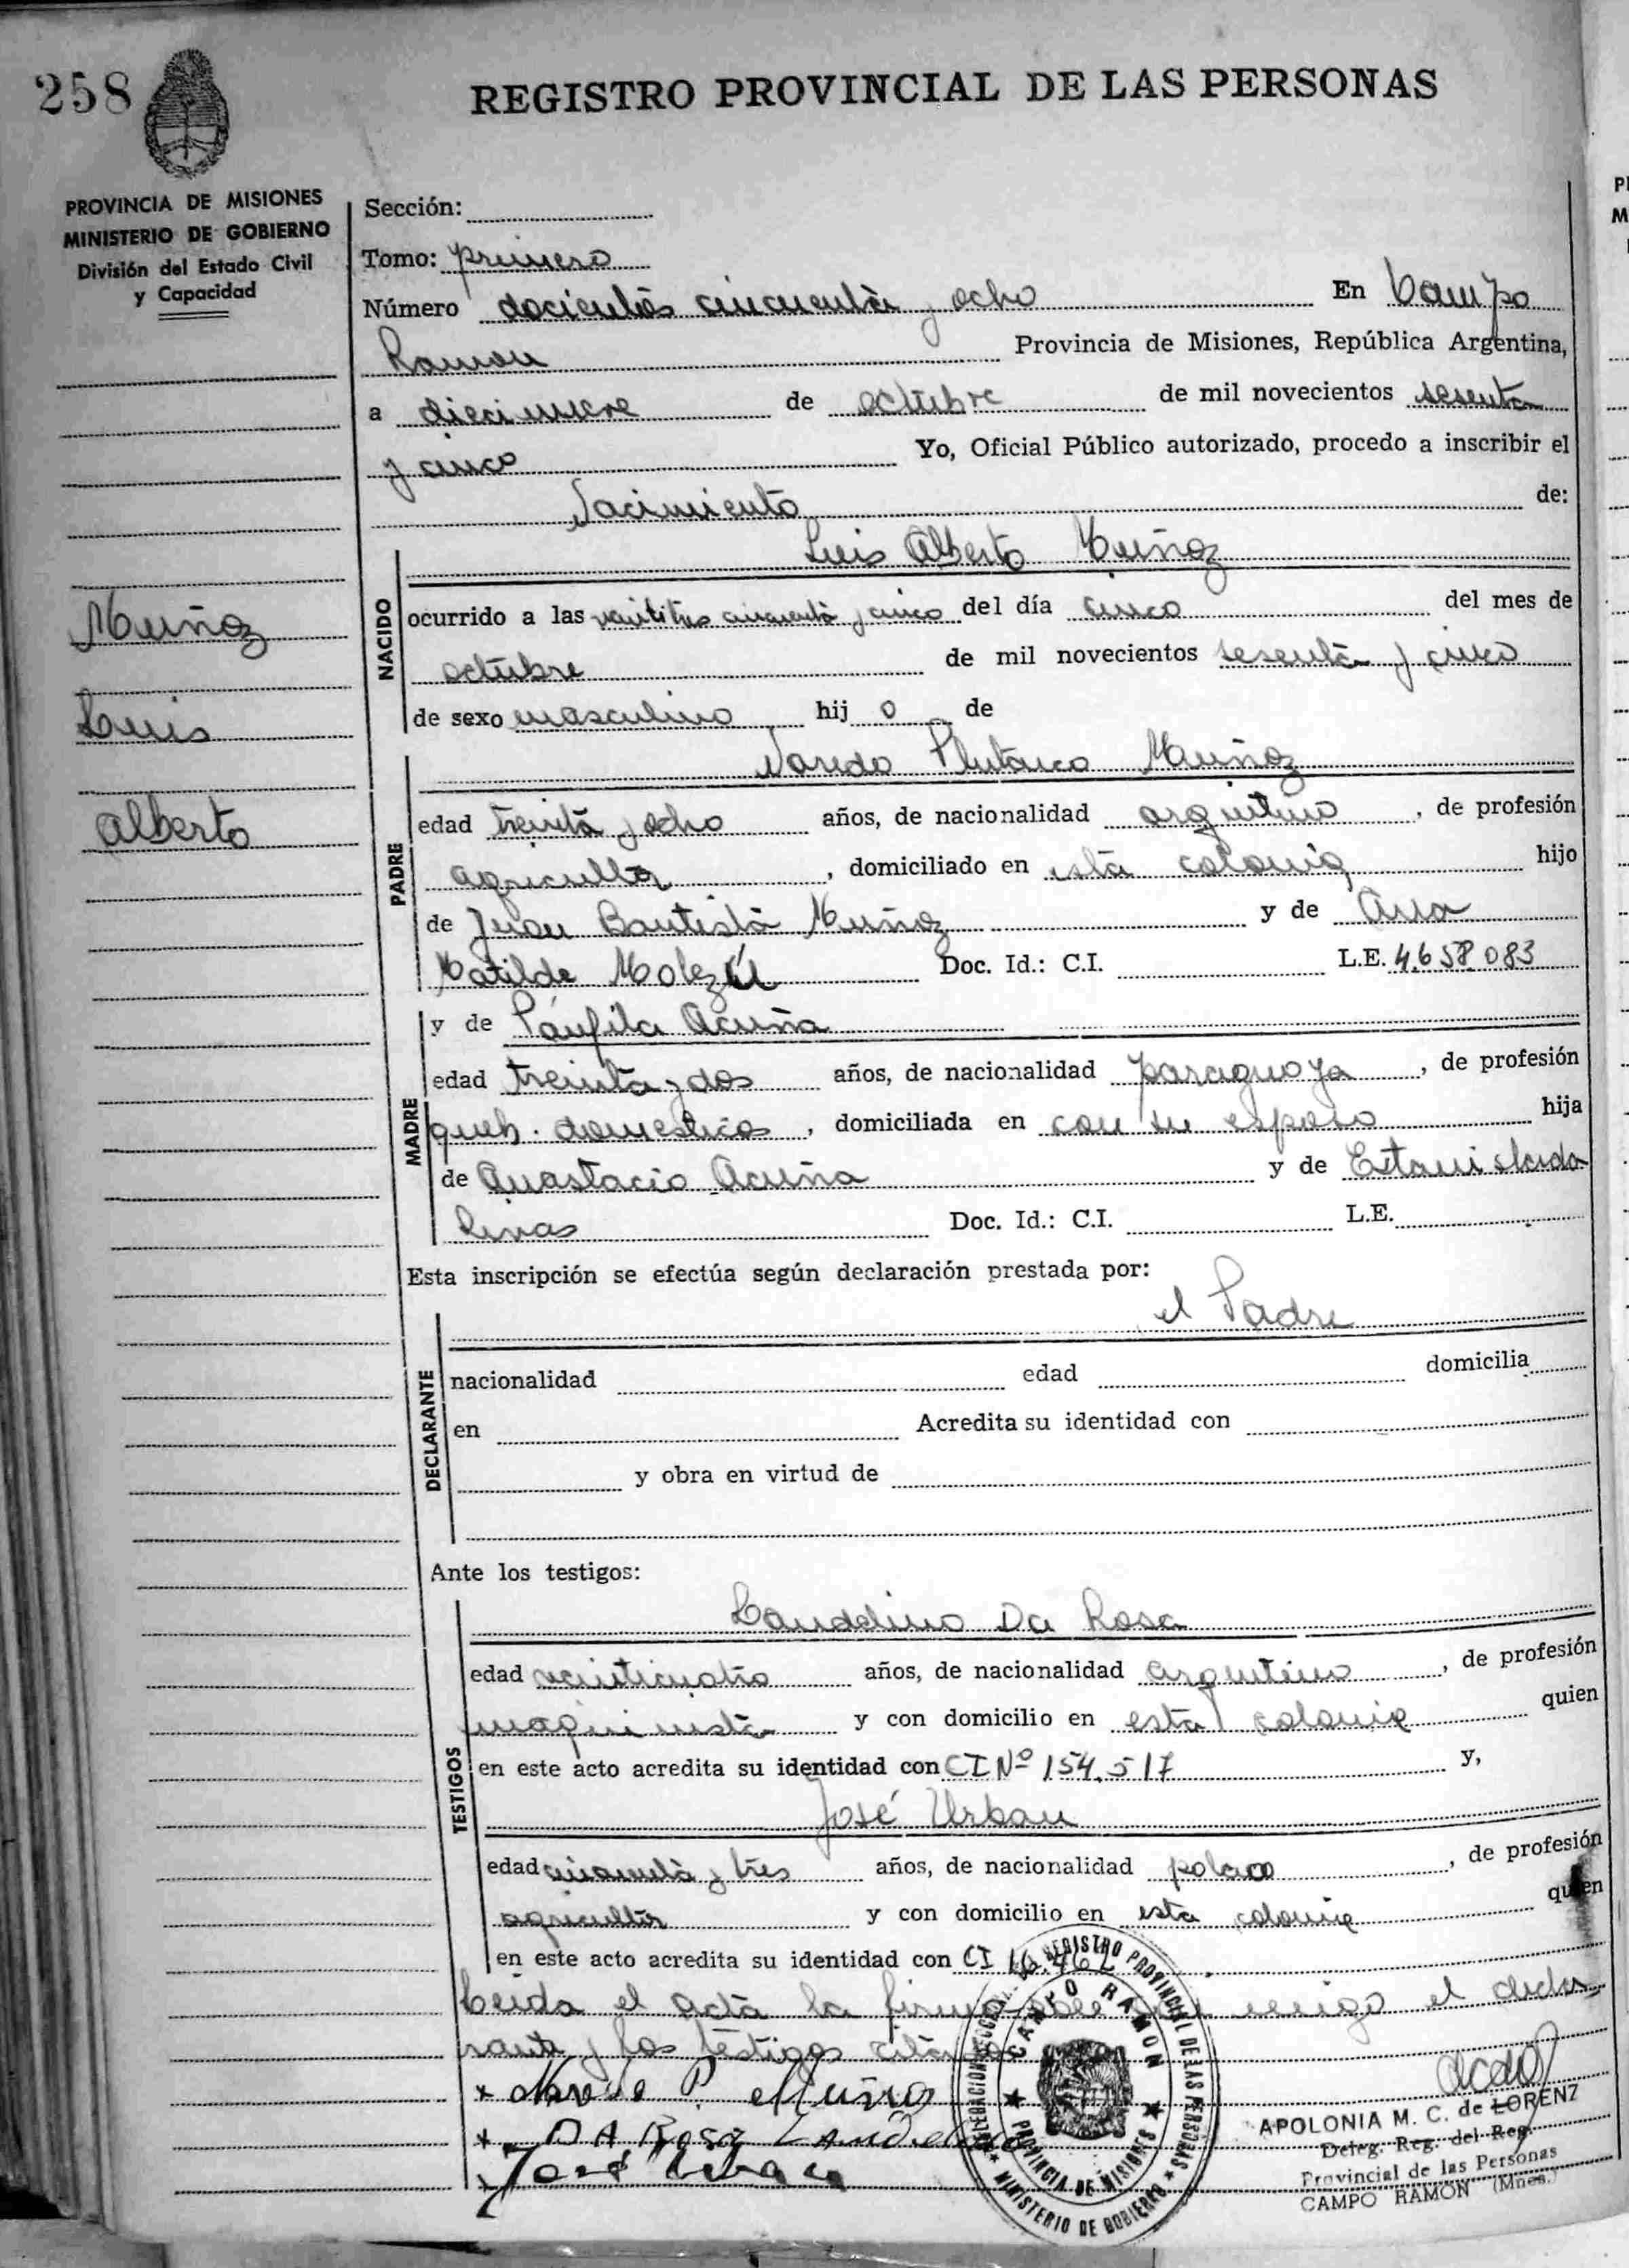 258
REGISTRO PROVINCIAL DE LAS PERSONAS
PROVINCIA DE MISIONES
MINISTERIO DE GOBIERNO
División del Estado Civil
y Capacidad
Muñoz
Luis
Alberto
Sección:
Tomo: primero
Número docientos cincuenta y ocho En Campo
Ramon Provincia de Misiones, República Argentina,
a diecinueve de octubre de mil novecientos sesenta
y cinco Yo, Oficial Público autorizado, procedo a inscribir el
Nacimiento de:
Luis Alberto Muñoz
NACIDO
ocurrido a las veintitres cincuenta y cinco del día cinco del mes de
octubre de mil novecientos sesenta y cinco
de sexo masculino hij o de
Nardo Plutarco Muñoz
PADRE
edad treinta y ocho años, de nacionalidad argentino, de profesión
agricultor, domiciliado en esta colonia hijo
de Juan Bautista Muñoz y de Ana
Matilde Doc. Id.: C.I. L.E. 4.658.083
y de Pánfila Acuña
MADRE
edad treinta y dos años, de nacionalidad paraguaya, de profesión
queh. domesticos, domiciliada en con su esposo hija
de Anastacio Acuña y de Estanislada
Rivas Doc. Id.: C.I. L.E.
Esta inscripción se efectúa según declaración prestada por:
el Padre
DECLARANTE
nacionalidad edad domicilia
en Acredita su identidad con
y obra en virtud de
Ante los testigos:
Landelino Da Rosa
TESTIGOS
edad veinticuatro años, de nacionalidad argentino, de profesión
maquinista y con domicilio en esta colonia quien
en este acto acredita su identidad con CI Nº 154.517 y,
José Urban
edad cincuenta y tres años, de nacionalidad polaco, de profesión
agricultor y con domicilio en esta colonia quien
en este acto acredita su identidad con CI
Leida el acta la firma conmigo el decla
rante y los testigos citados
x P. Muñoz
x DA Rosa Landelino
x José Urban
REGISTRO PROVINCIAL DE LAS PERSONAS
CAMPO RAMON
PROVINCIA DE MISIONES
MINISTERIO DE GOBIERNO
APOLONIA M. C. de LORENZ
Deleg. Reg. del Reg.
Provincial de las Personas
CAMPO RAMON (Mnes.)